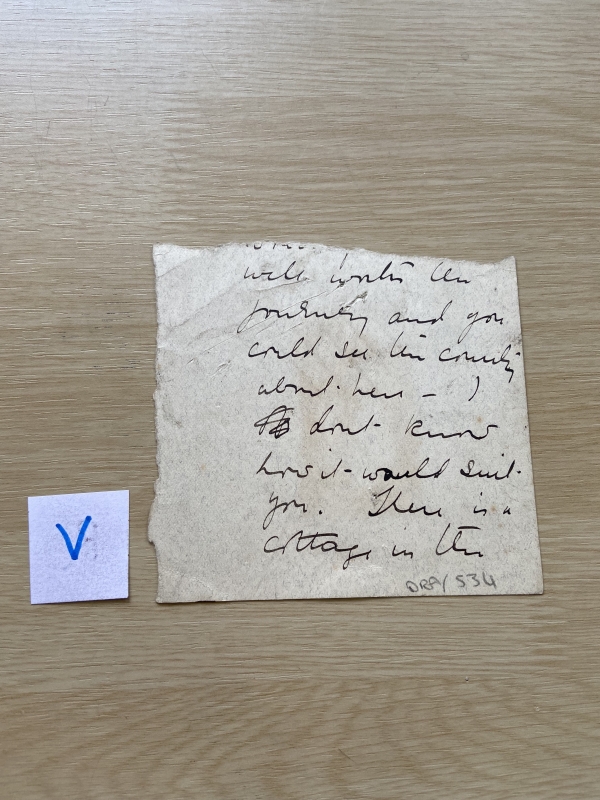 well worth the
journey and you
could see the country
about here - I
dont know
how it would suit
you. There is a
cottage in the
DRA/534
V